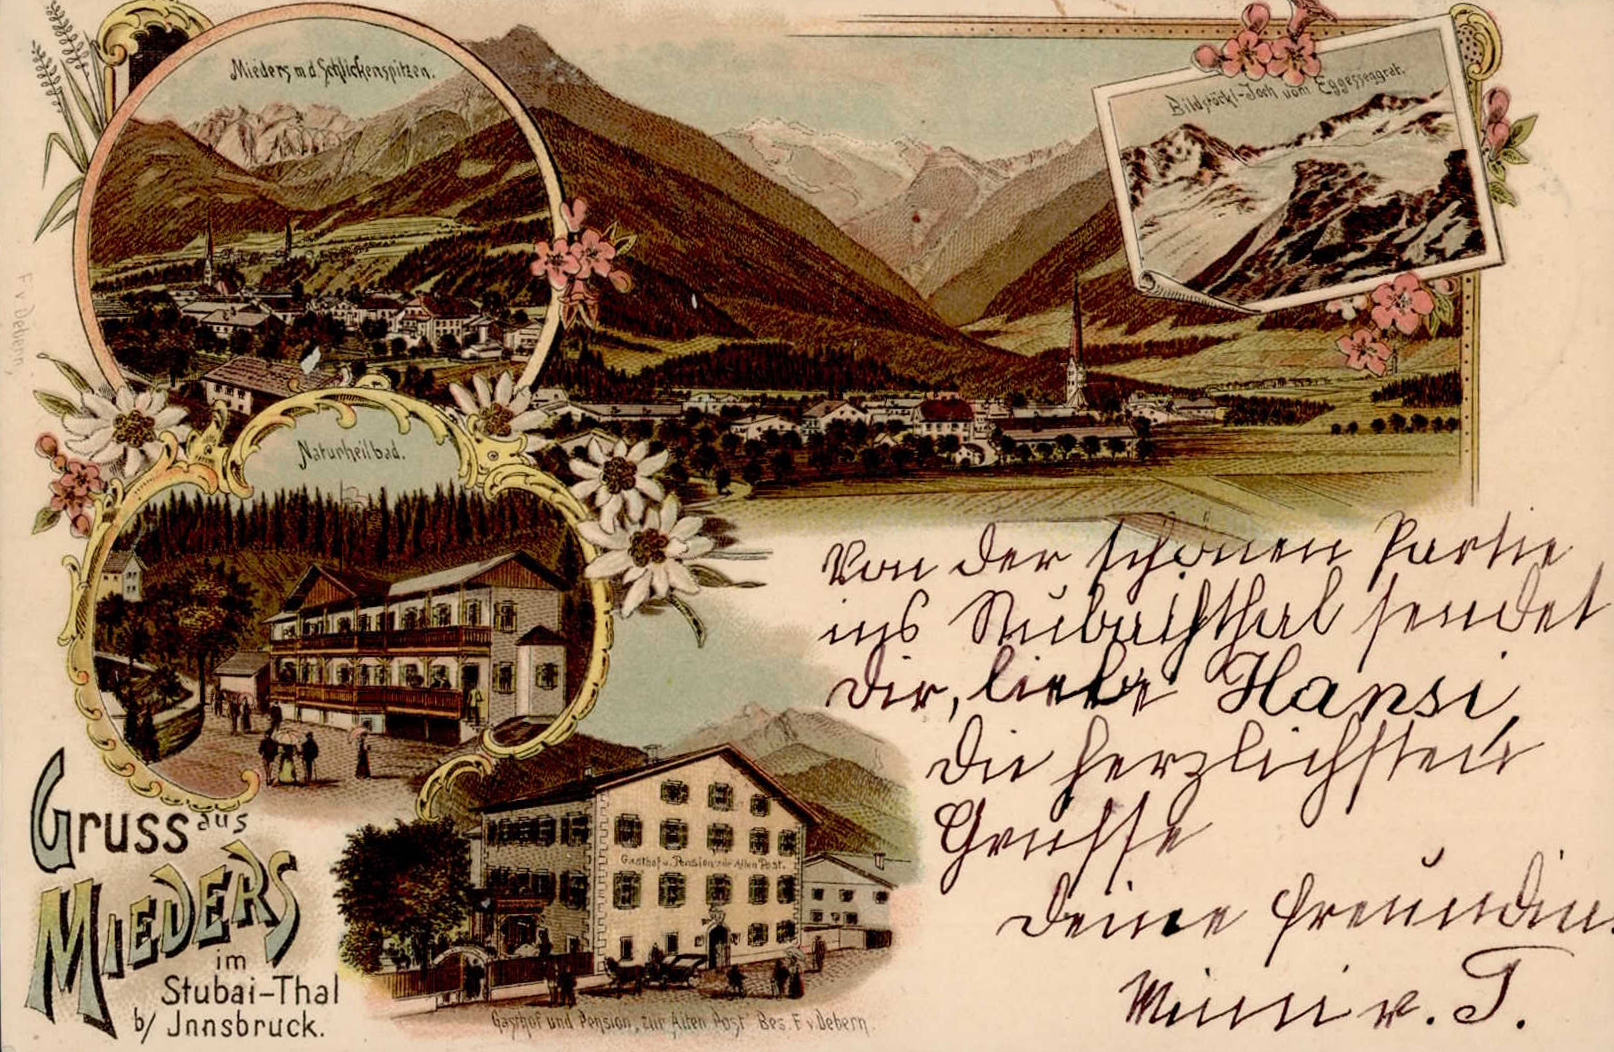 Mieders m.d. Schlickenspitzen.
Bildstöckl-Joch vom Eggesseggrat.
F v Debern
Naturheilbad.
Von der schönen Partie
ins Stubaithal sendet
dir, liebe Hansi,
die herzlichsten
Grüsse
deine Freundin
Mimi v. T.
Gruss aus
Mieders
im
Stubai-Thal
b/ Innsbruck.
Gasthof u. Pension zur Alten Post.
Gasthof und Pension „zur Alten Post" Bes. F v Debern.